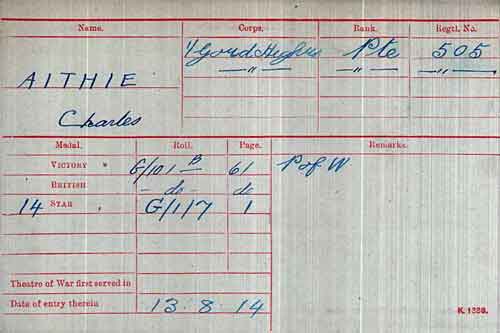 Name. Corps. Rank. Regtl. No.
1/Gord Highrs Pte 505
AITHIE —"— —"— —"—
Charles
Medal. Roll. Page. Remarks.
VICTORY " G/101 B 61 P of W
BRITISH - do - do
14 STAR G/1/7 1
Theatre of War first served in
Date of entry therein 13. 8. 14
K. 1380.